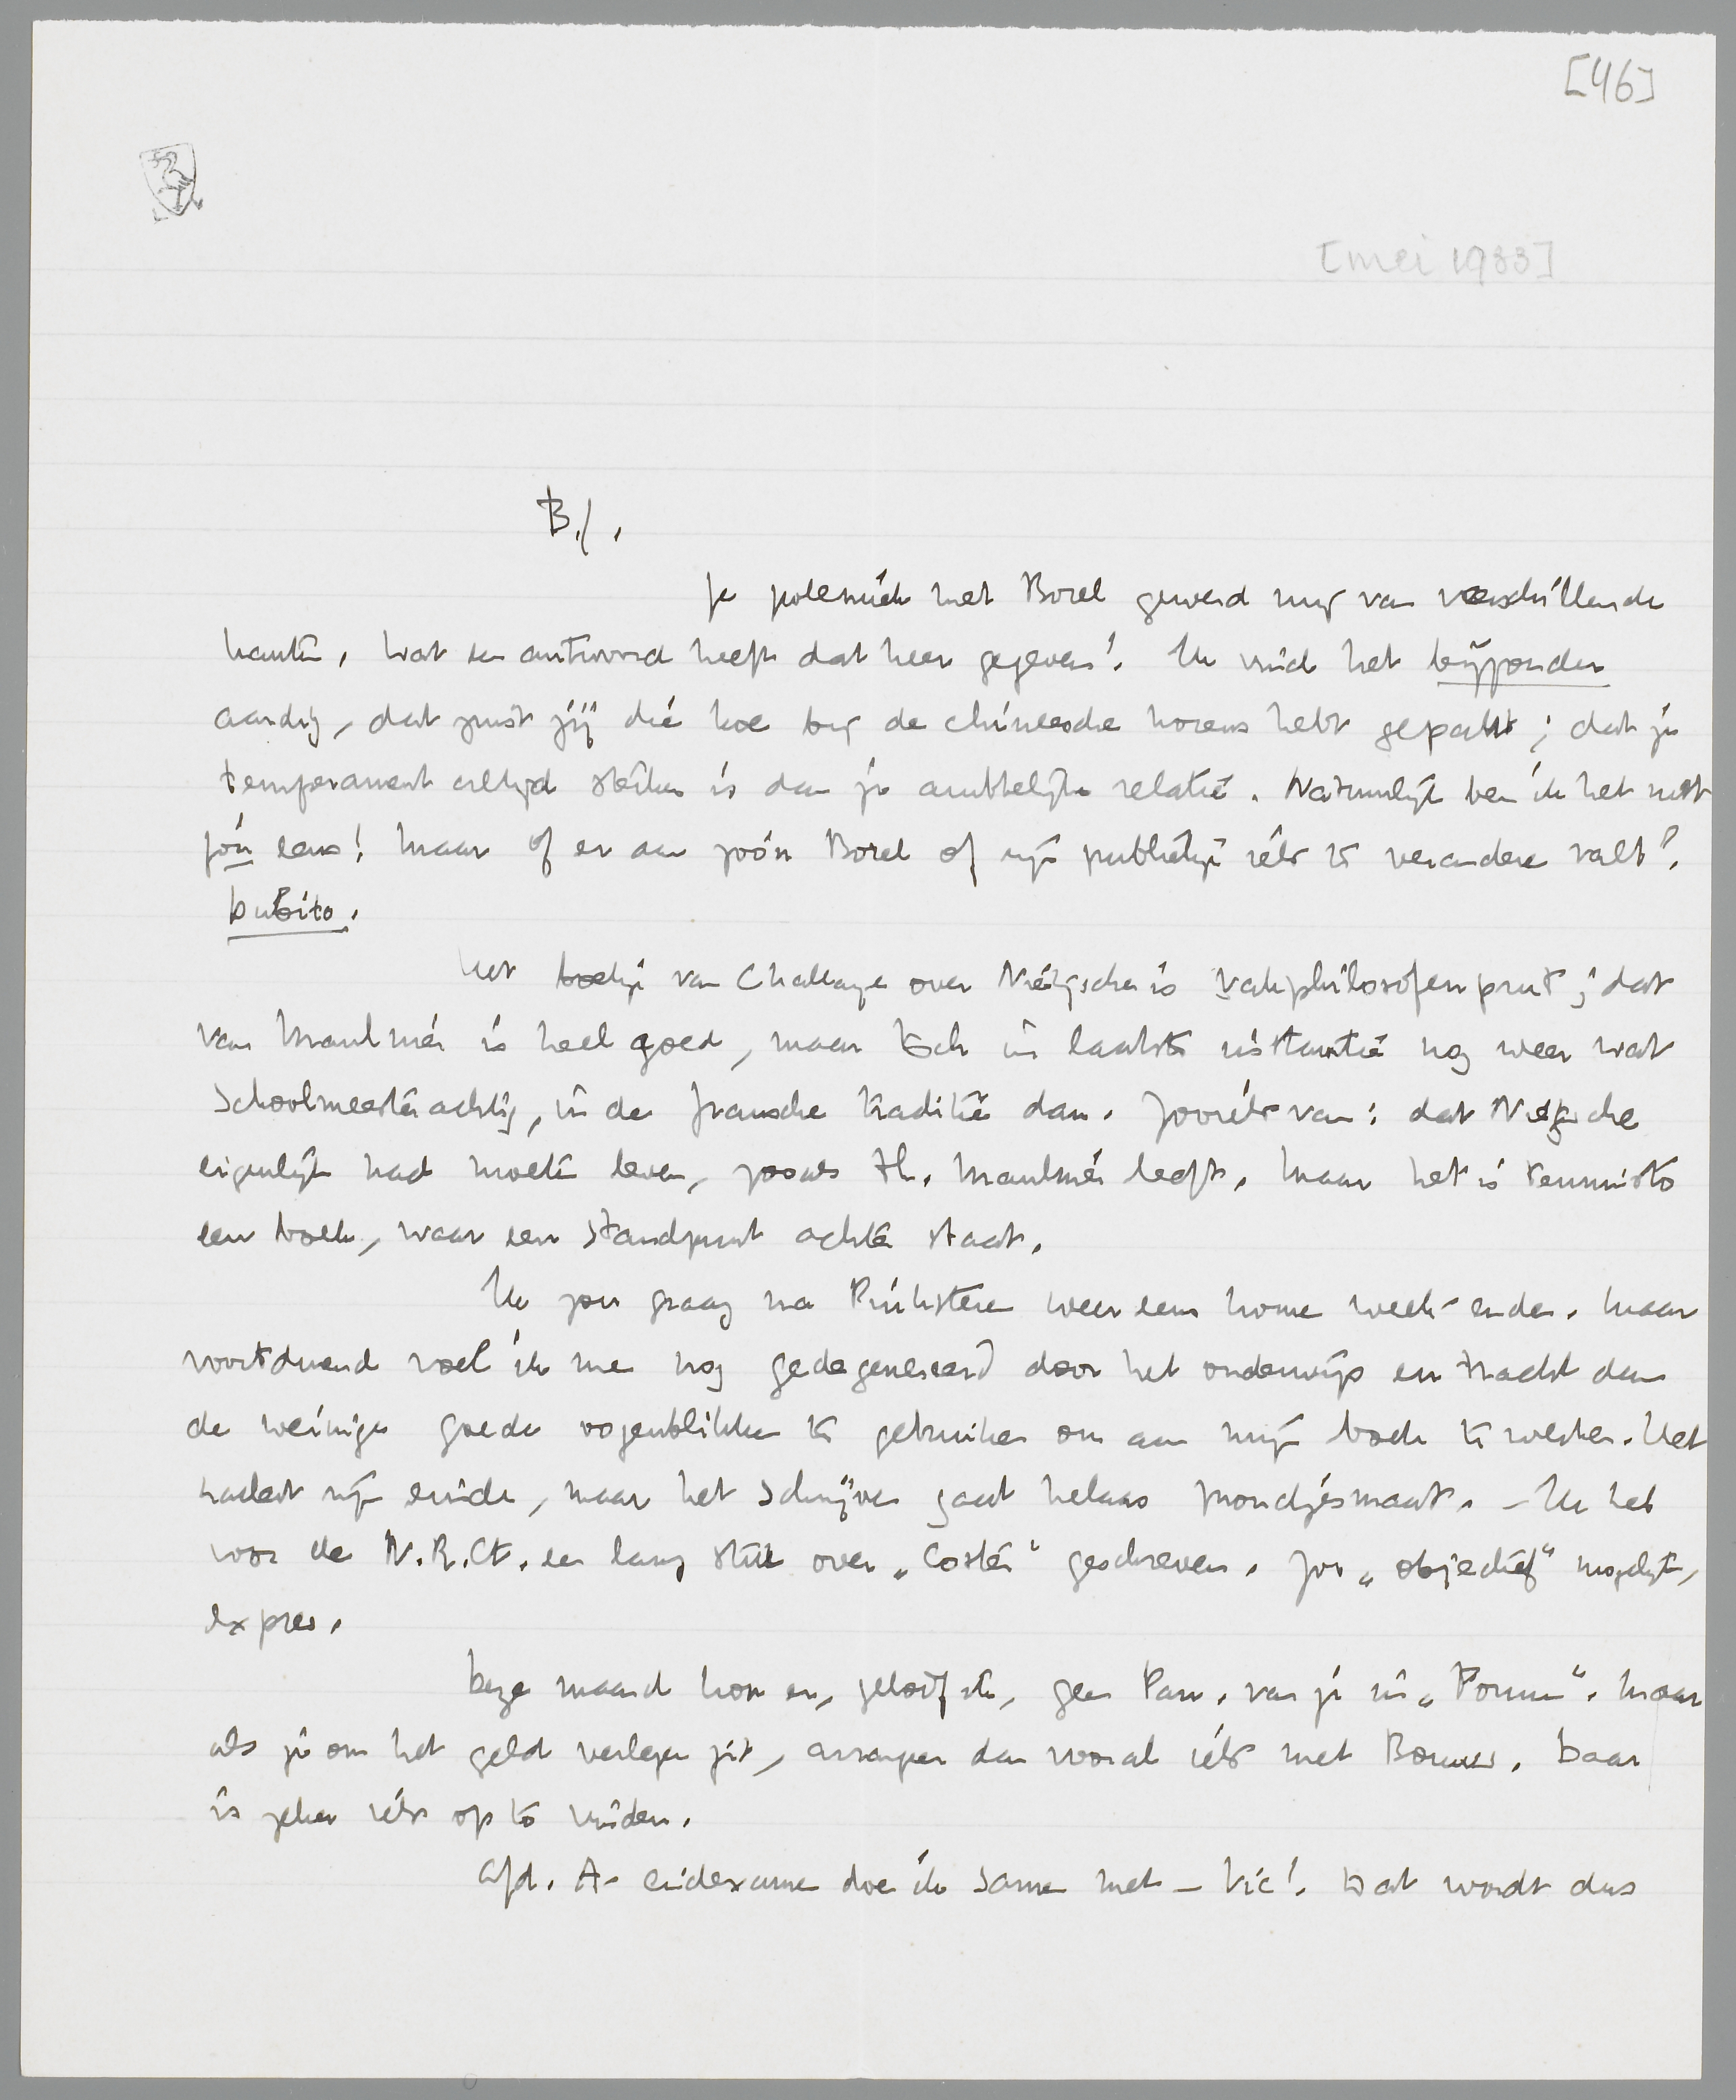 [46]
[mei 1933]
B.J.
Je polemiek met Borel gewerd mij van verschillende
kanten. Wat een antwoord heeft dat heer gegeven! Ik vind het bijzonder
aardig, dat juist jij die koe bij de chineesche horens hebt gepakt; dat je
temperament altijd sterker is dan je ambtelijke relatie. Natuurlijk ben ik het met
jóu eens! Maar of er aan zoo'n Borel of zijn publiekje iets te veranderen valt?
Dubito.
Het boekje van Challaye over Nietzsche is vakphilosofenpraat; dat
van Maulnier is heel goed, maar toch in laatste instantie nog weer wat
schoolmeesterachtig, in de fransche traditie dan. Zooiets van: dat Nietzsche
eigenlijk had moeten leven, zooals Th. Maulnier leeft. Maar het is tenminste
een boek, waar een standpunt achter staat.
Ik zou graag na Pinksteren weer eens komen week-enden. Maar
voortdurend voel ik me nog gedegenereerd door het onderwijs en tracht dan
de weinige goede oogenblikken te gebruiken om aan mijn boek te werken. Het
nadert zijn einde, maar het schrijven gaat helaas mondjesmaat. – Ik heb
voor de N.R.Ct. een lang stuk over „Coster" geschreven. Zoo „objectief" mogelijk,
expres.
Deze maand kon er, geloof ik, geen Pan. van je in „Forum". Maar
als je om het geld verlegen zit, arrangeer dan vooral iets met Bouws. Daar
is zeker iets op te vinden.
Afd. A- eindexamen doe ik samen met – Vic! Dat wordt dus